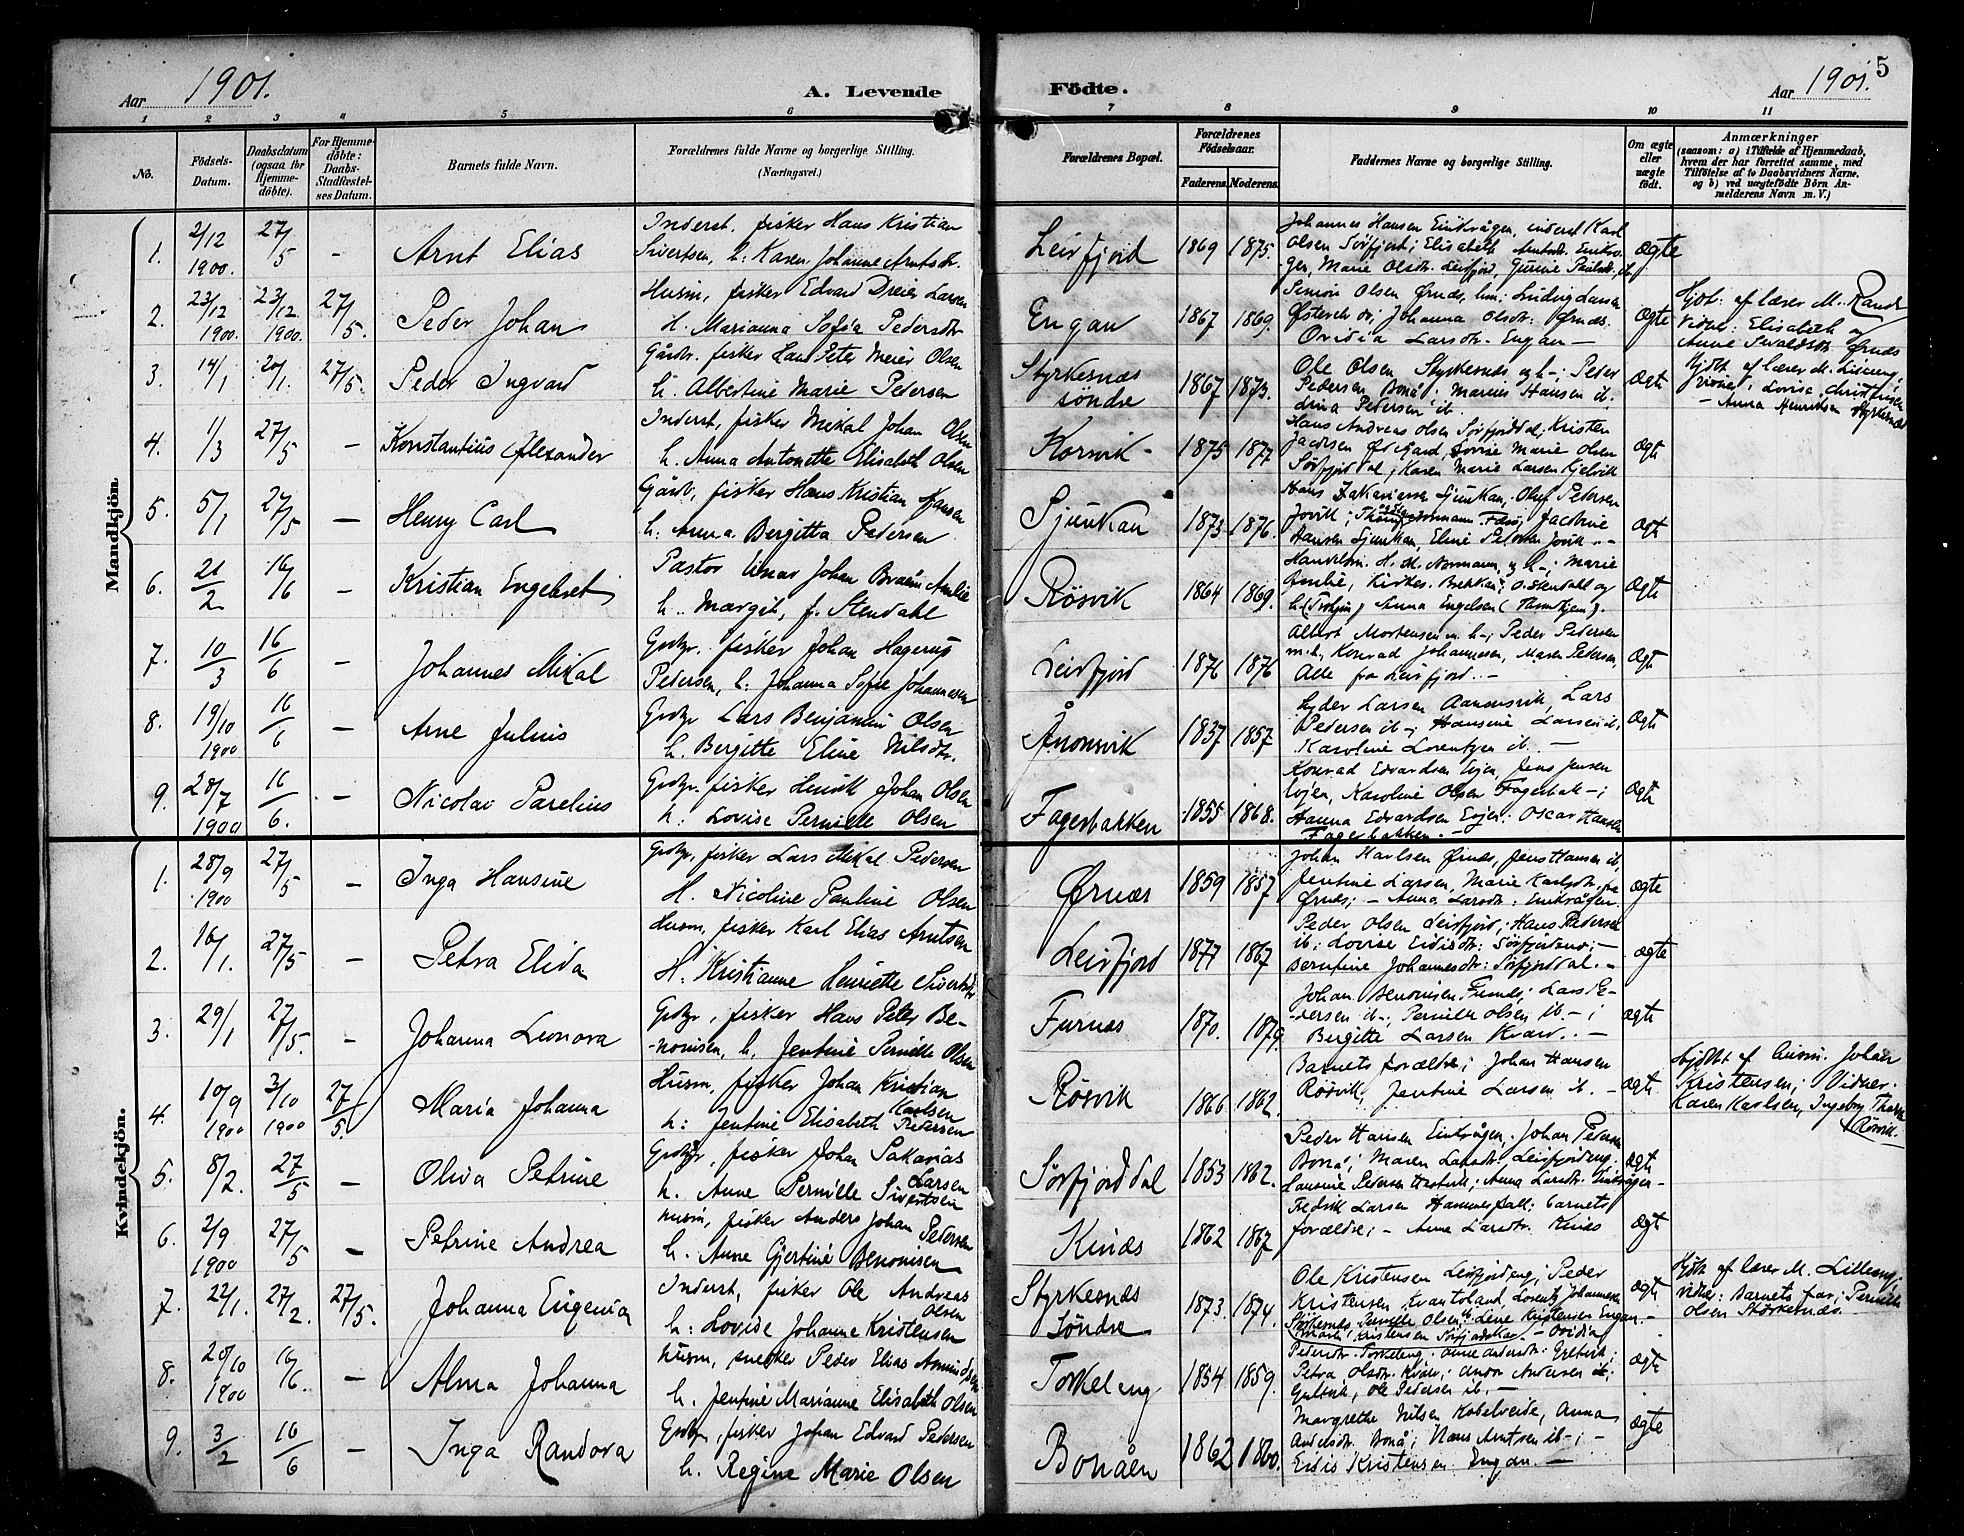 Aar 1901.
A. Levende Födte.
Aar 1901.
5
1 2 3 4 5 6 7 8 9 10 11
No.
Födsels-Datum.
Daabsdatum (ogsaa for Hjemmedöbte).
For Hjemmedöbte: Daabs-Stadfestelses Datum.
Barnets fulde Navn.
Forældrenes fulde Navne og borgerlige Stilling. (Næringsvei.)
Forældrenes Bopæl.
Forældrenes Födselsaar.
Faderens. Moderens.
Faddernes Navne og borgerlige Stilling.
Om ægte eller uægte födt.
Anmærkninger
(saasom: a) i Tilfælde af Hjemmedaab, hvem der har forrettet samme, med Tilföielse af to Daabsvidners Navne, og b) ved uægtefödte Börn Anmelderens Navn m. V.)
Mandkjön.
1. 2/12 1900. 27/5 - Arnt Elias
Inderst, fisker Hans Kristian
Sivertsen, h. Karen Johanne Arntsdr.
Leirfjord 1869 1875.
Johannes Hansen Eirkvågen, inderst Karl
Olsen Sörfjord; Elisabeth
Marie Olsdr. Leirfjord,
ægte
2. 23/12 1900. 23/12 1900. 27/5. Peder Johan
Husm, fisker Edvard Dreier Larsen
H. Marianna Sofia Pedersdtr
Engan 1867 1869.
Simon Olsen Örnes, hm: Ludvig Larsen
Johanna Olsdr. Örnes.
Ovidia Larsdtr. Engan -
ægte
Hjdbt. af lærer M. Rand
Vidner: Elisabeth og
Anne Örnes
3. 14/1 20/1. 27/5. Peder Ingvard
Gårdbr. fisker Hans Peter Meier Olsen
h. Albertine Marie Pedersen
Styrkesnæs söndre 1867 1873.
Ole Olsen Styrkesnæs og h-; Peder
Pedersen Bonå; Marius Hansen ib.
Pedersen ib.
ægte
Hjdbt af lærer M. Lilleeng;
vidner: Lovise Christensen
- Anna Henriksen Styrkesnæs
4. 1/3 27/5 - Konstantius Alexander
Inderst, fisker Mikal Johan Olsen
h. Anna Antonette Elisabeth Olsen
Korsvik - 1875 1877
Hans Andreas Olsen Sörfjorddal; Kristen
Jacobsen Lovise Marie Olsen
Sörfjorddal, Karen Marie Larsen Gjelvik
ægt
5. 5/1 27/5 - Henry Carl
Gårdb, fisker Hans Kristian Hansen
h. Anna Bergitta Pedersen
Sjunkan 1873 1876.
Hans Zakariassen Sjunkan, Oluf Pedersen
Jovik; Normann Jacobine
Hansen Sjunkan, Eline Pedersen Jovik -
ægt
6. 21/2 16/6 - Kristian Engebret
Pastor Johan
h. Margit, f. Stendahl
Rösvik 1864 1869.
Handelsm. H. M. Normann, og h-; Marie
Amalie, O. Stendahl og
Anna Engelsen
ægte
7. 10/3 16/6 - Johannes Mikal
Grdbr. fisker Johan Hagerup
Pedersen, h. Johanna Sofie Johannesen
Leirfjord 1876 1876
Albert Mortensen m. h-; Peder Pedersen
m. h, Konrad Johannesen, Maren Pedersen,
Alle fra Leirfjord. -
ægte
8. 19/10 1900 16/6 - Arne Julius
Grdbr Lars Benjamin Olsen
h. Bergitte Eline Nilsdtr.
Ånonsvik 1837 1857
Lyder Larsen Aanonsvik, Lars
Pedersen ib -; Hansine Larsen ib,
Karoline Lorentzen ib. -
ægte
9. 28/7 1900 16/6. - Nicolav Parelius
Grdbr. fisker Henrik Johan Olsen
h: Lovise Pernille Olsen
Fagerbakken 1855 1868.
Konrad Edvardsen Evjen, Jens Jensen
Evjen, Karoline Olsen Fagerbak -;
Hanna Edvardsen Evjen. Oscar Hansen
Fagerbakken. -
ægte
Kvindekjön.
1. 28/9 1900 27/5 - Inga Hansine
Grdbr, fisker Lars Mikal Pedersen
H. Nicoline Pauline Olsen
Örnæs 1859 1857
Johan Karlsen Örnes, Jens Hansen ib,
Jentine Larsen, Marie Karlsdtr. fra
Örnes; - Anna Larsdtr. Eirkvågen.
ægte
2. 16/1. 27/5 - Petra Elida
Husm, fisker Karl Elias Arntsen
H. Kristianne Henriette Sivertsdtr
Leirfjord 1877 1867
Peder Olsen Leirfjord; Hans Pedersen
ib: Lovise Eidisdtr:
Serafine Johannesdtr: Sörfjorddal. -
ægte
3. 29/1 27/5. - Johanna Leonora
Grdbr, fisker Hans Peter Be-
nonisen, h. Jentine Pernille Olsen
Furnæs 1870. 1879.
Johan Benonisen Furnes; Lars Pe-
dersen ib -; Pernille Olsen ib. - ;
Bergitte Larsen Kvarv. -
ægte
4. 10/9 1900 3/10 1900 27/5. Maria Johanna
Husm, fisker Johan Kristian Karlsen
h: Jentine Elisabeth Pedersen
Rösvik 1866 1862.
Barnets forældre; Johan Hansen
Rösvik, Jentine Larsen ib. -
ægte
Hjdbt af Johan
Kristensen; Vidner:
Karen Karlsen, Ingeborg
Rösvik.
5. 8/2. 27/5 - Oliva Petrine
Grdbr, fisker Johan Sakarias Larsen
h. Anne Pernille Sivertsen
Sörfjorddal 1853 1862.
Peder Hansen Eirkvågen, Johan Pedersen
Bonå; Maren Larsdtr. Leirfjordeng.
Pedersen Anna Larsdtr. Eirkvågen -
ægte
6. 2/9 1900 27/5 - Petrine Andrea
Husm, fisker Anders Johan Pedersen
h. Anne Gjertine Benonisen
Kinæs 1862 1867
Fredrik Larsen Hammerfall; barnets
forældre; - Anne Larsdtr. Kines
ægt
7. 22/1. 27/2. 27/5. Johanna Eugenia
Inderst, fisker Ole Andreas Olsen
h: Lovise Johanne Kristensen
Styrkesnæs Söndre 1873. 1874.
Ole Kristensen Leirfjordeng; Peder
Kristensen Kvantoland, Lorentz Johannesen
Styrkesnes, Pernille Olsen ib. Line Kristensen Engan -
Kristensen - Ovidia
ægte
Hjdbt af lærer M. Lilleeng;
vidner: Barnets far; Pernille
Olsen Styrkesnæs. -
8. 20/10 1900 16/6. - Alma Johanna
Husm, snedker Peder Elias Amundsen
h. Jentine Marianne Elisabeth Olsen
Torkeleng 1854 1859.
Pedersdtr. Torkeleng,
Petra Olsdtr. Kvarv; Andor Andersen ib:
Ole Pedersen ib. -
ægte
9. 3/2 16/6 - Inga Randora
Grdbr, fisker Johan Edvard Pedersen
h. Regine Marie Olsen
Bonåen 1862 1860.
Margrethe Nilsen Kobelveide, Anna
Andelsdtr. Bonå; Hans Arntsen ib -; -
Eidis Kristensen Engan -
ægte